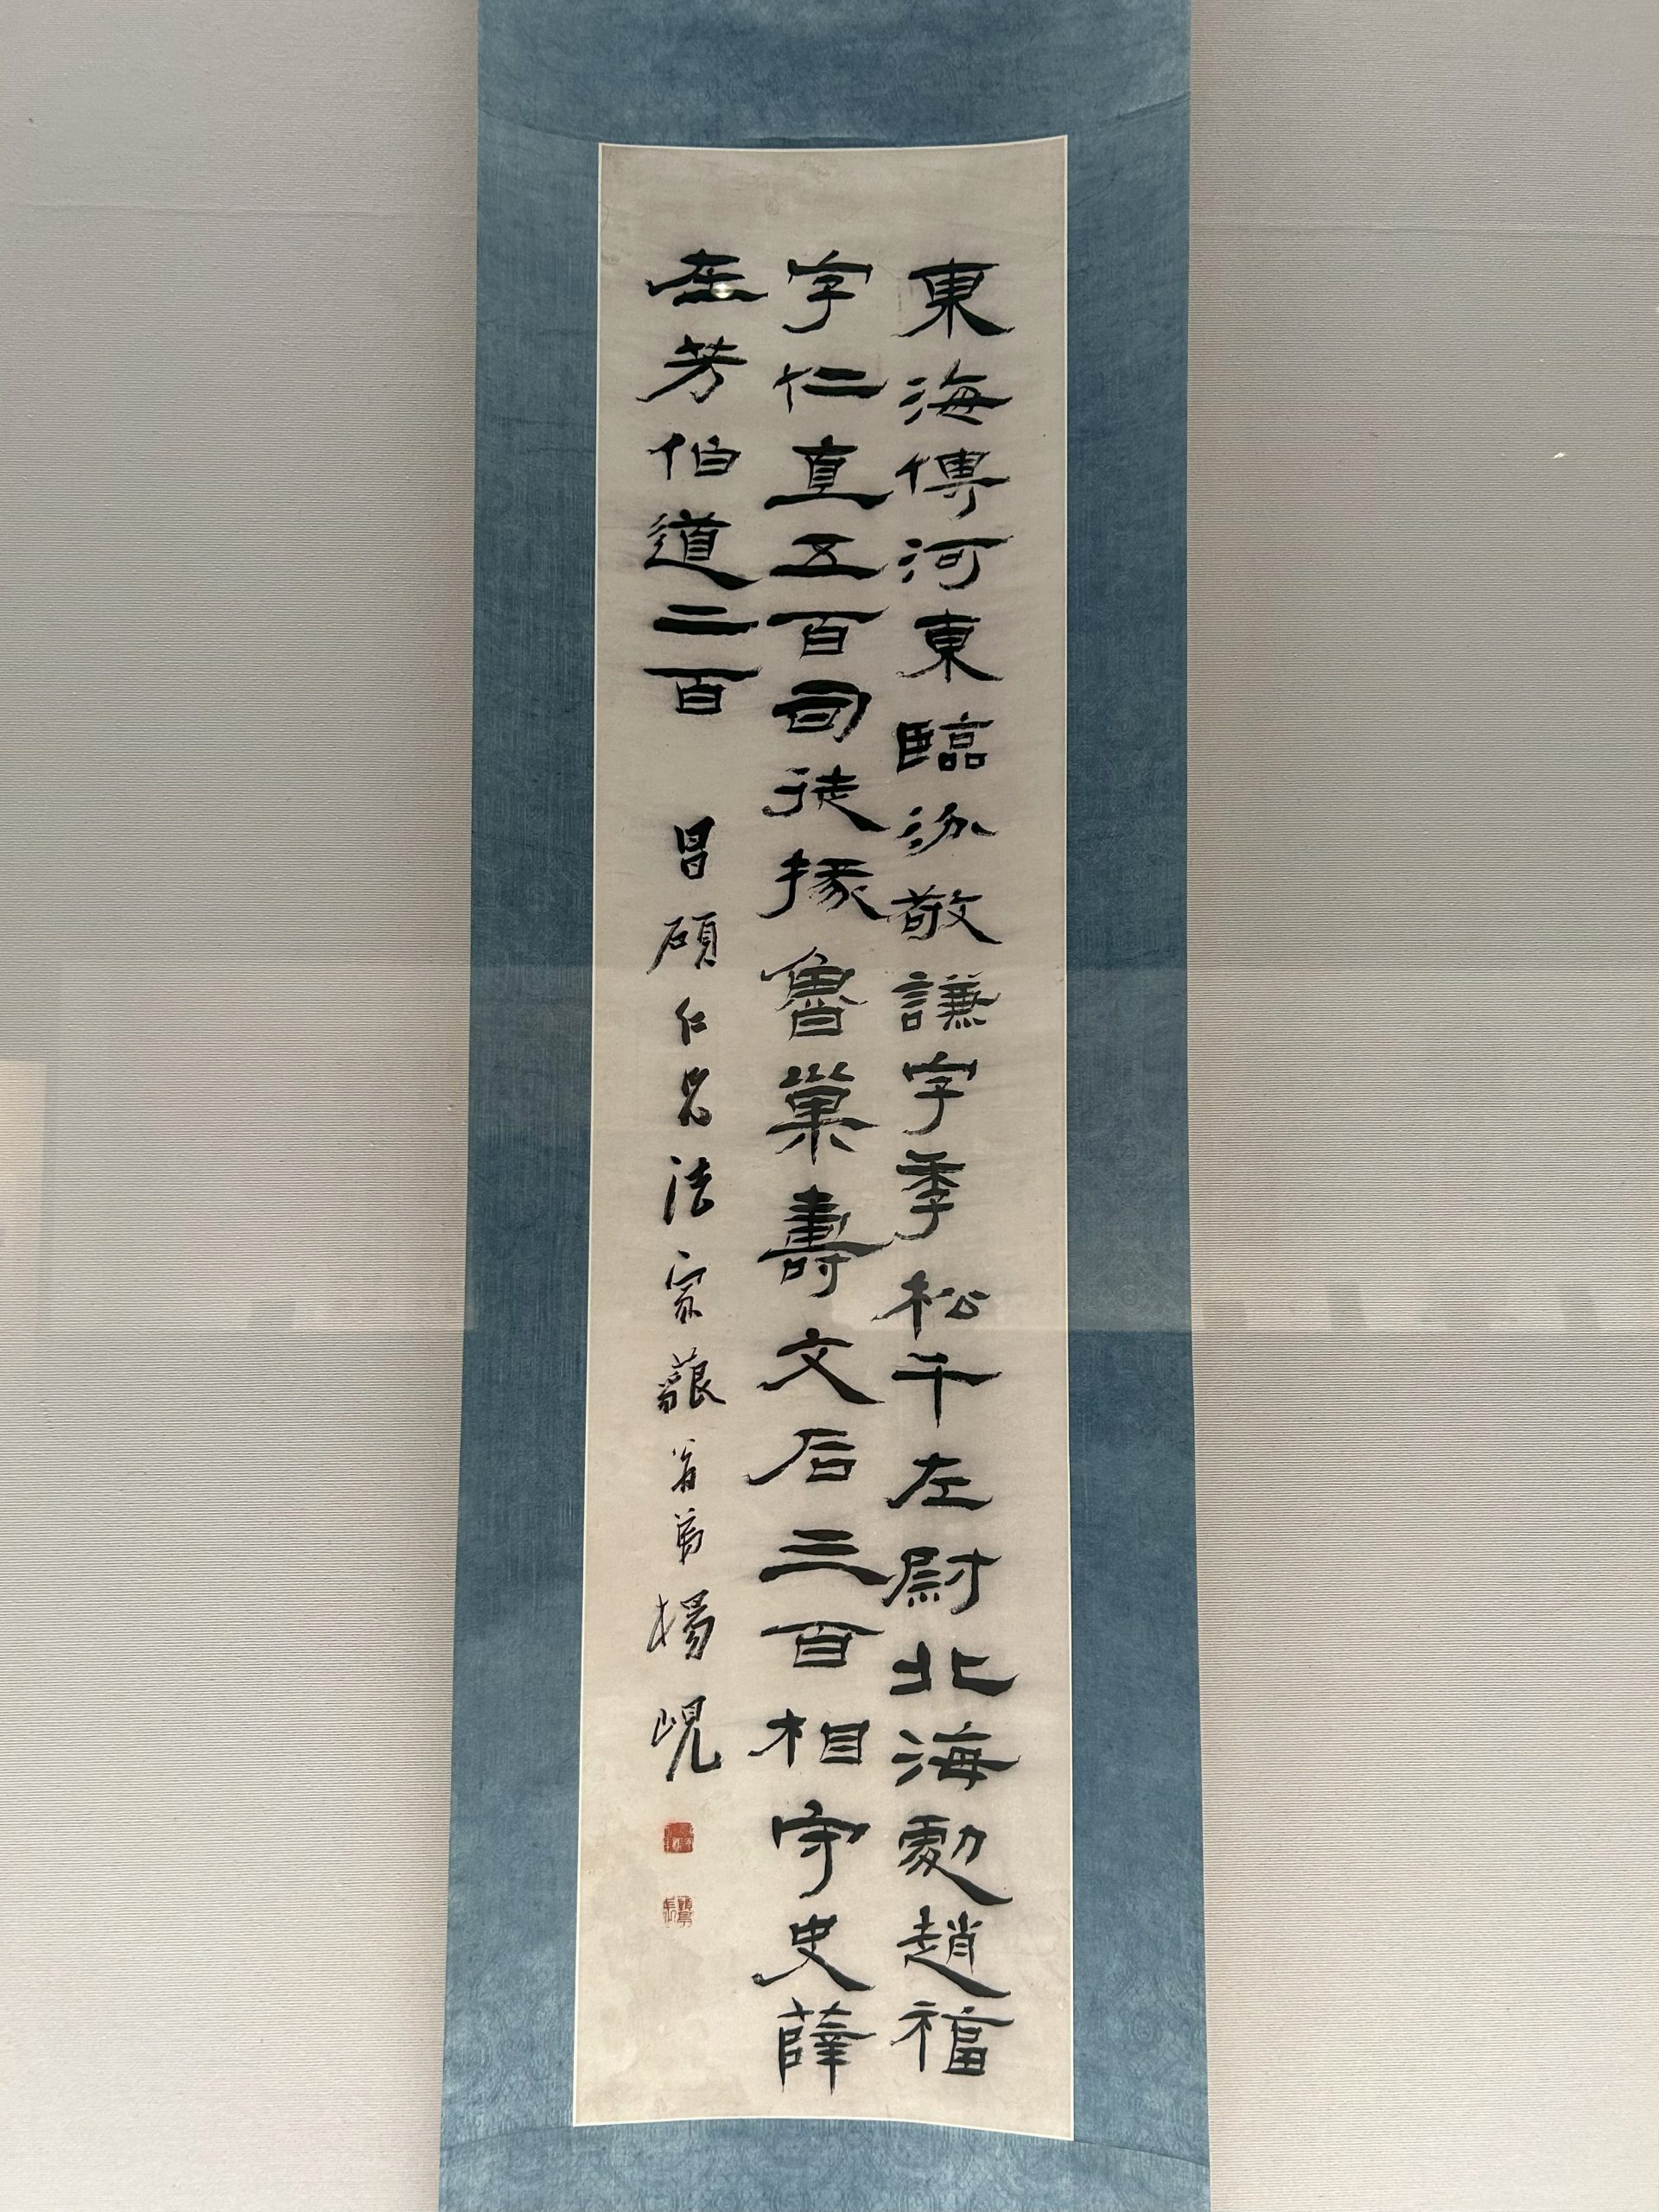 東海傅河東臨汾敬謙字季松千左尉北海勮趙福
字仁直五百司徒掾魯巢壽文后三百相守史薛
芳伯道二百
昌碩仁兄法家藐翁弟楊峴